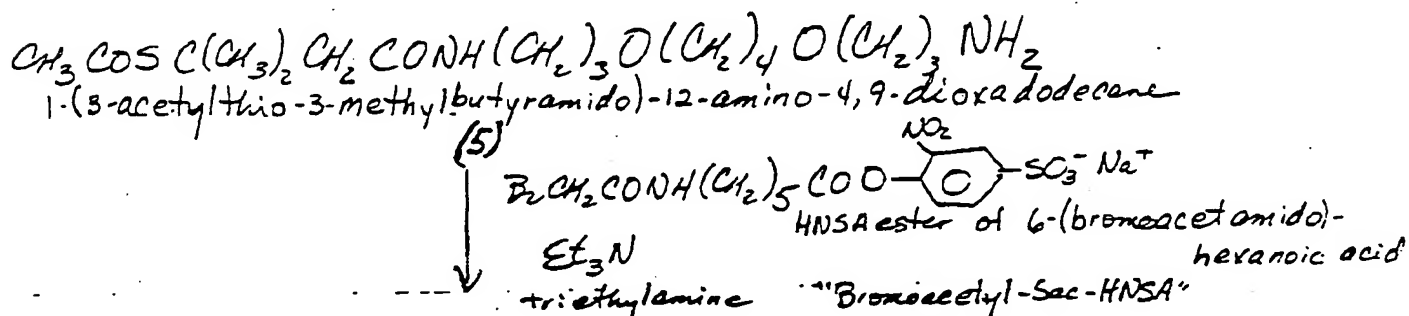 CH3COSC(CH3)2CH2CONH(CH2)3O(CH2)4O(CH2)3NH2
1-(3-acetylthio-3-methylbutyramido)-12-amino-4,9-dioxadodecane
(5)
NO2
BrCH2CONH(CH2)5COO SO3- Na+
HNSA ester of 6-(bromoacetamido)-
hexanoic acid
Et3N
triethylamine "Bromoacetyl-Sac-HNSA"